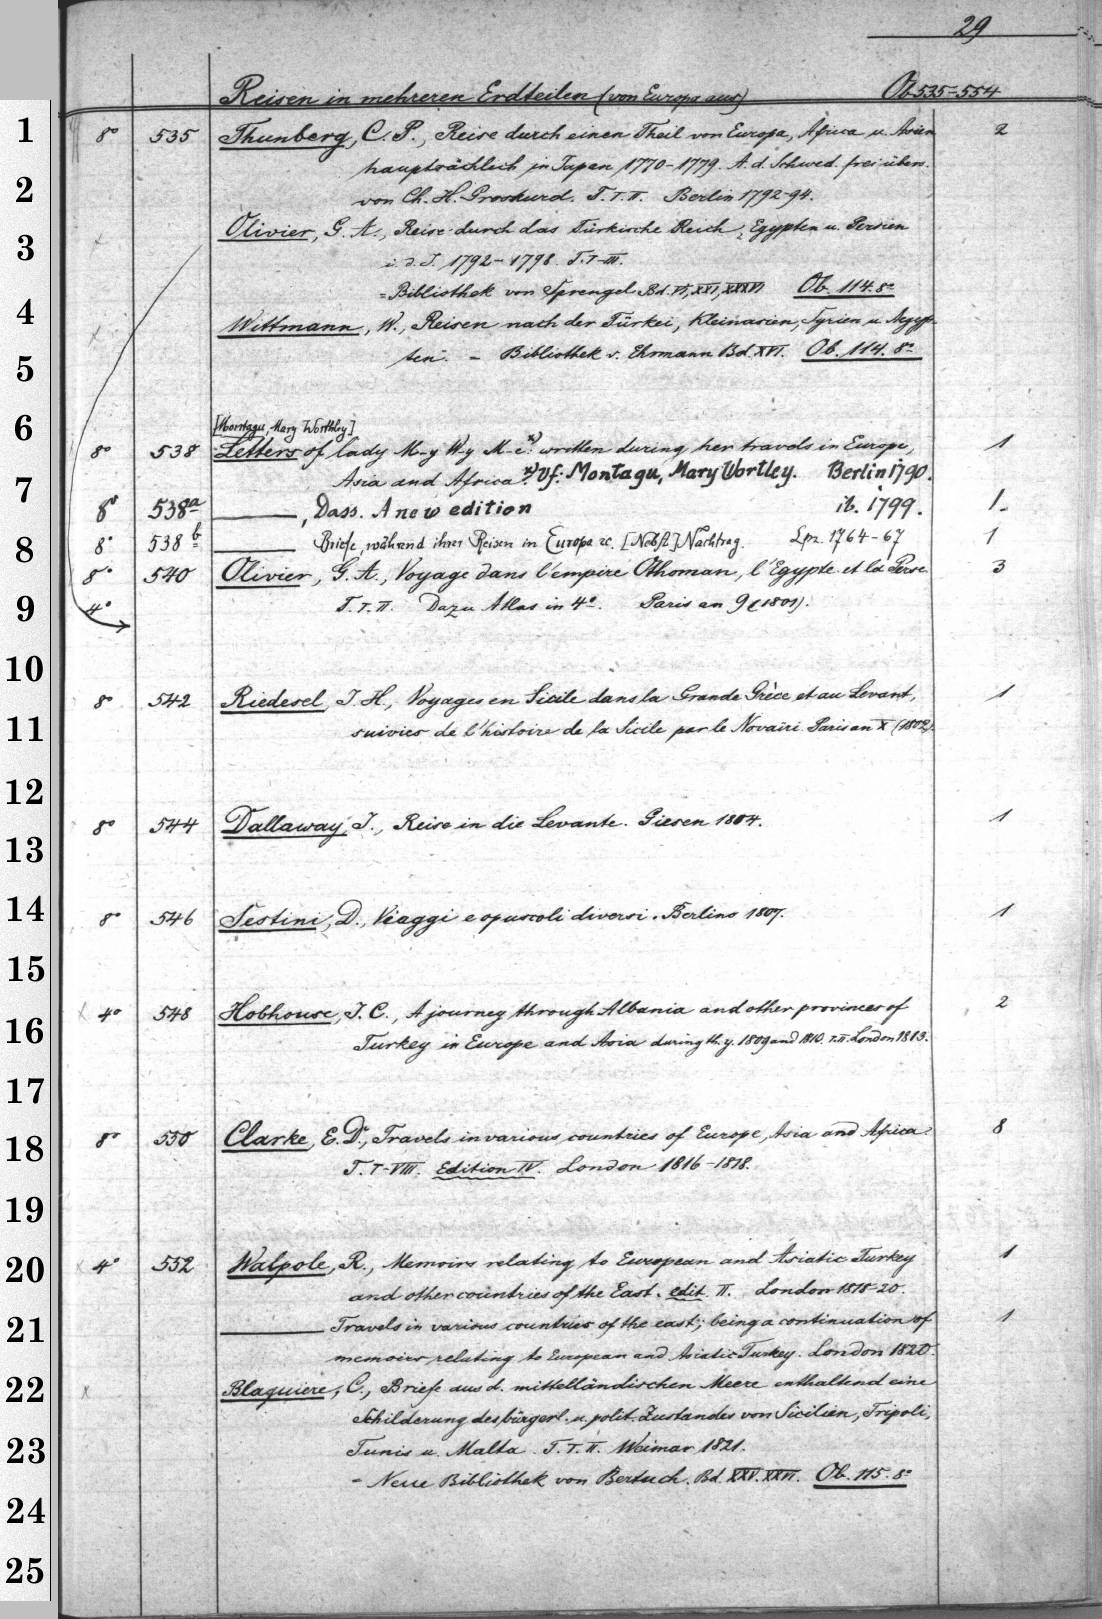 29
Reisen in mehreren Erdteilen (von Europa aus) Ob 535-554
1 8° 535 Thunberg, C. P., Reise durch einen Theil von Europa, Africa u. Asien 2
hauptsächlich in Japan, 1770-1779. A. d. Schwed. frei übers.
2 von Ch. H. Groskurd. T. I. II. Berlin 1792-94.
3 Olivier, G. A., Reise durch das Türkische Reich, Egypten u. Persien
i. d. J. 1792-1798. T. I-III.
= Bibliothek von Sprengel Bd. VI, XXI, XXXVI Ob. 114. 8°
4 Wittmann, W., Reisen nach der Türkei, Kleinasien, Syrien u. Aegyp-
5 ten. = Bibliothek v. Ehrmann Bd. XVI. Ob. 114. 8°
6 [Montagu, Mary Worthley]
8° 538 Letters of lady M-y W-y M-e.x) written during her travels in Europe, 1
7 Asia and Africa. x) Vf: Montagu, Mary Wortley. Berlin 1790.
8° 538a ———, Dass. A new edition ib. 1799. 1.
8 8° 538b ——— Briefe, während ihrer Reisen in Europa &c. [Nebst] Nachtrag. Lpz. 1764-67 1
8° 540 Olivier, G. A., Voyage dans l'empire Othoman, l'Egypte et la Perse 3
9 4° T. I. II. Dazu Atlas in 4°. Paris an 9 (1801).
10
8° 542 Riedesel, J. H., Voyages en Sicile dans la Grande Grèce et au Levant, 1
11 suivies de l'histoire de la Sicile par le Novaïri. Paris an X (1802).
12
8° 544 Dallaway, J., Reise in die Levante. Giesen 1804. 1
13
14 8° 546 Sestini, D., Viaggi e opuscoli diversi. Berlino 1807. 1
15
x 4° 548 Hobhouse, J. C., A journey through Albania and other provinces of 2
16 Turkey in Europe and Asia during th. y. 1809 and 1810. T. II. London 1813.
17
18 8° 550 Clarke, E. D., Travels in various countries of Europe, Asia and Africa. 8
T. I-VIII. Edition IV. London 1816-1818.
19
20 x 4° 552 Walpole, R., Memoirs relating to European and Asiatic Turkey 1
and other countries of the East. edit. II. London 1818-20.
21 ——— Travels in various countries of the east; being a continuation of 1
memoirs relating to European and Asiatic Turkey. London 1820.
22 x Blaquiere, C., Briefe aus d. mittelländischen Meere enthaltend eine
Schilderung des bürgerl. u. polit. Zustandes von Sicilien, Tripoli,
23 Tunis u. Malta. T. I. II. Weimar 1821.
= Neue Bibliothek von Bertuch. Bd. XXV. XXVI. Ob. 115. 8°
24
25